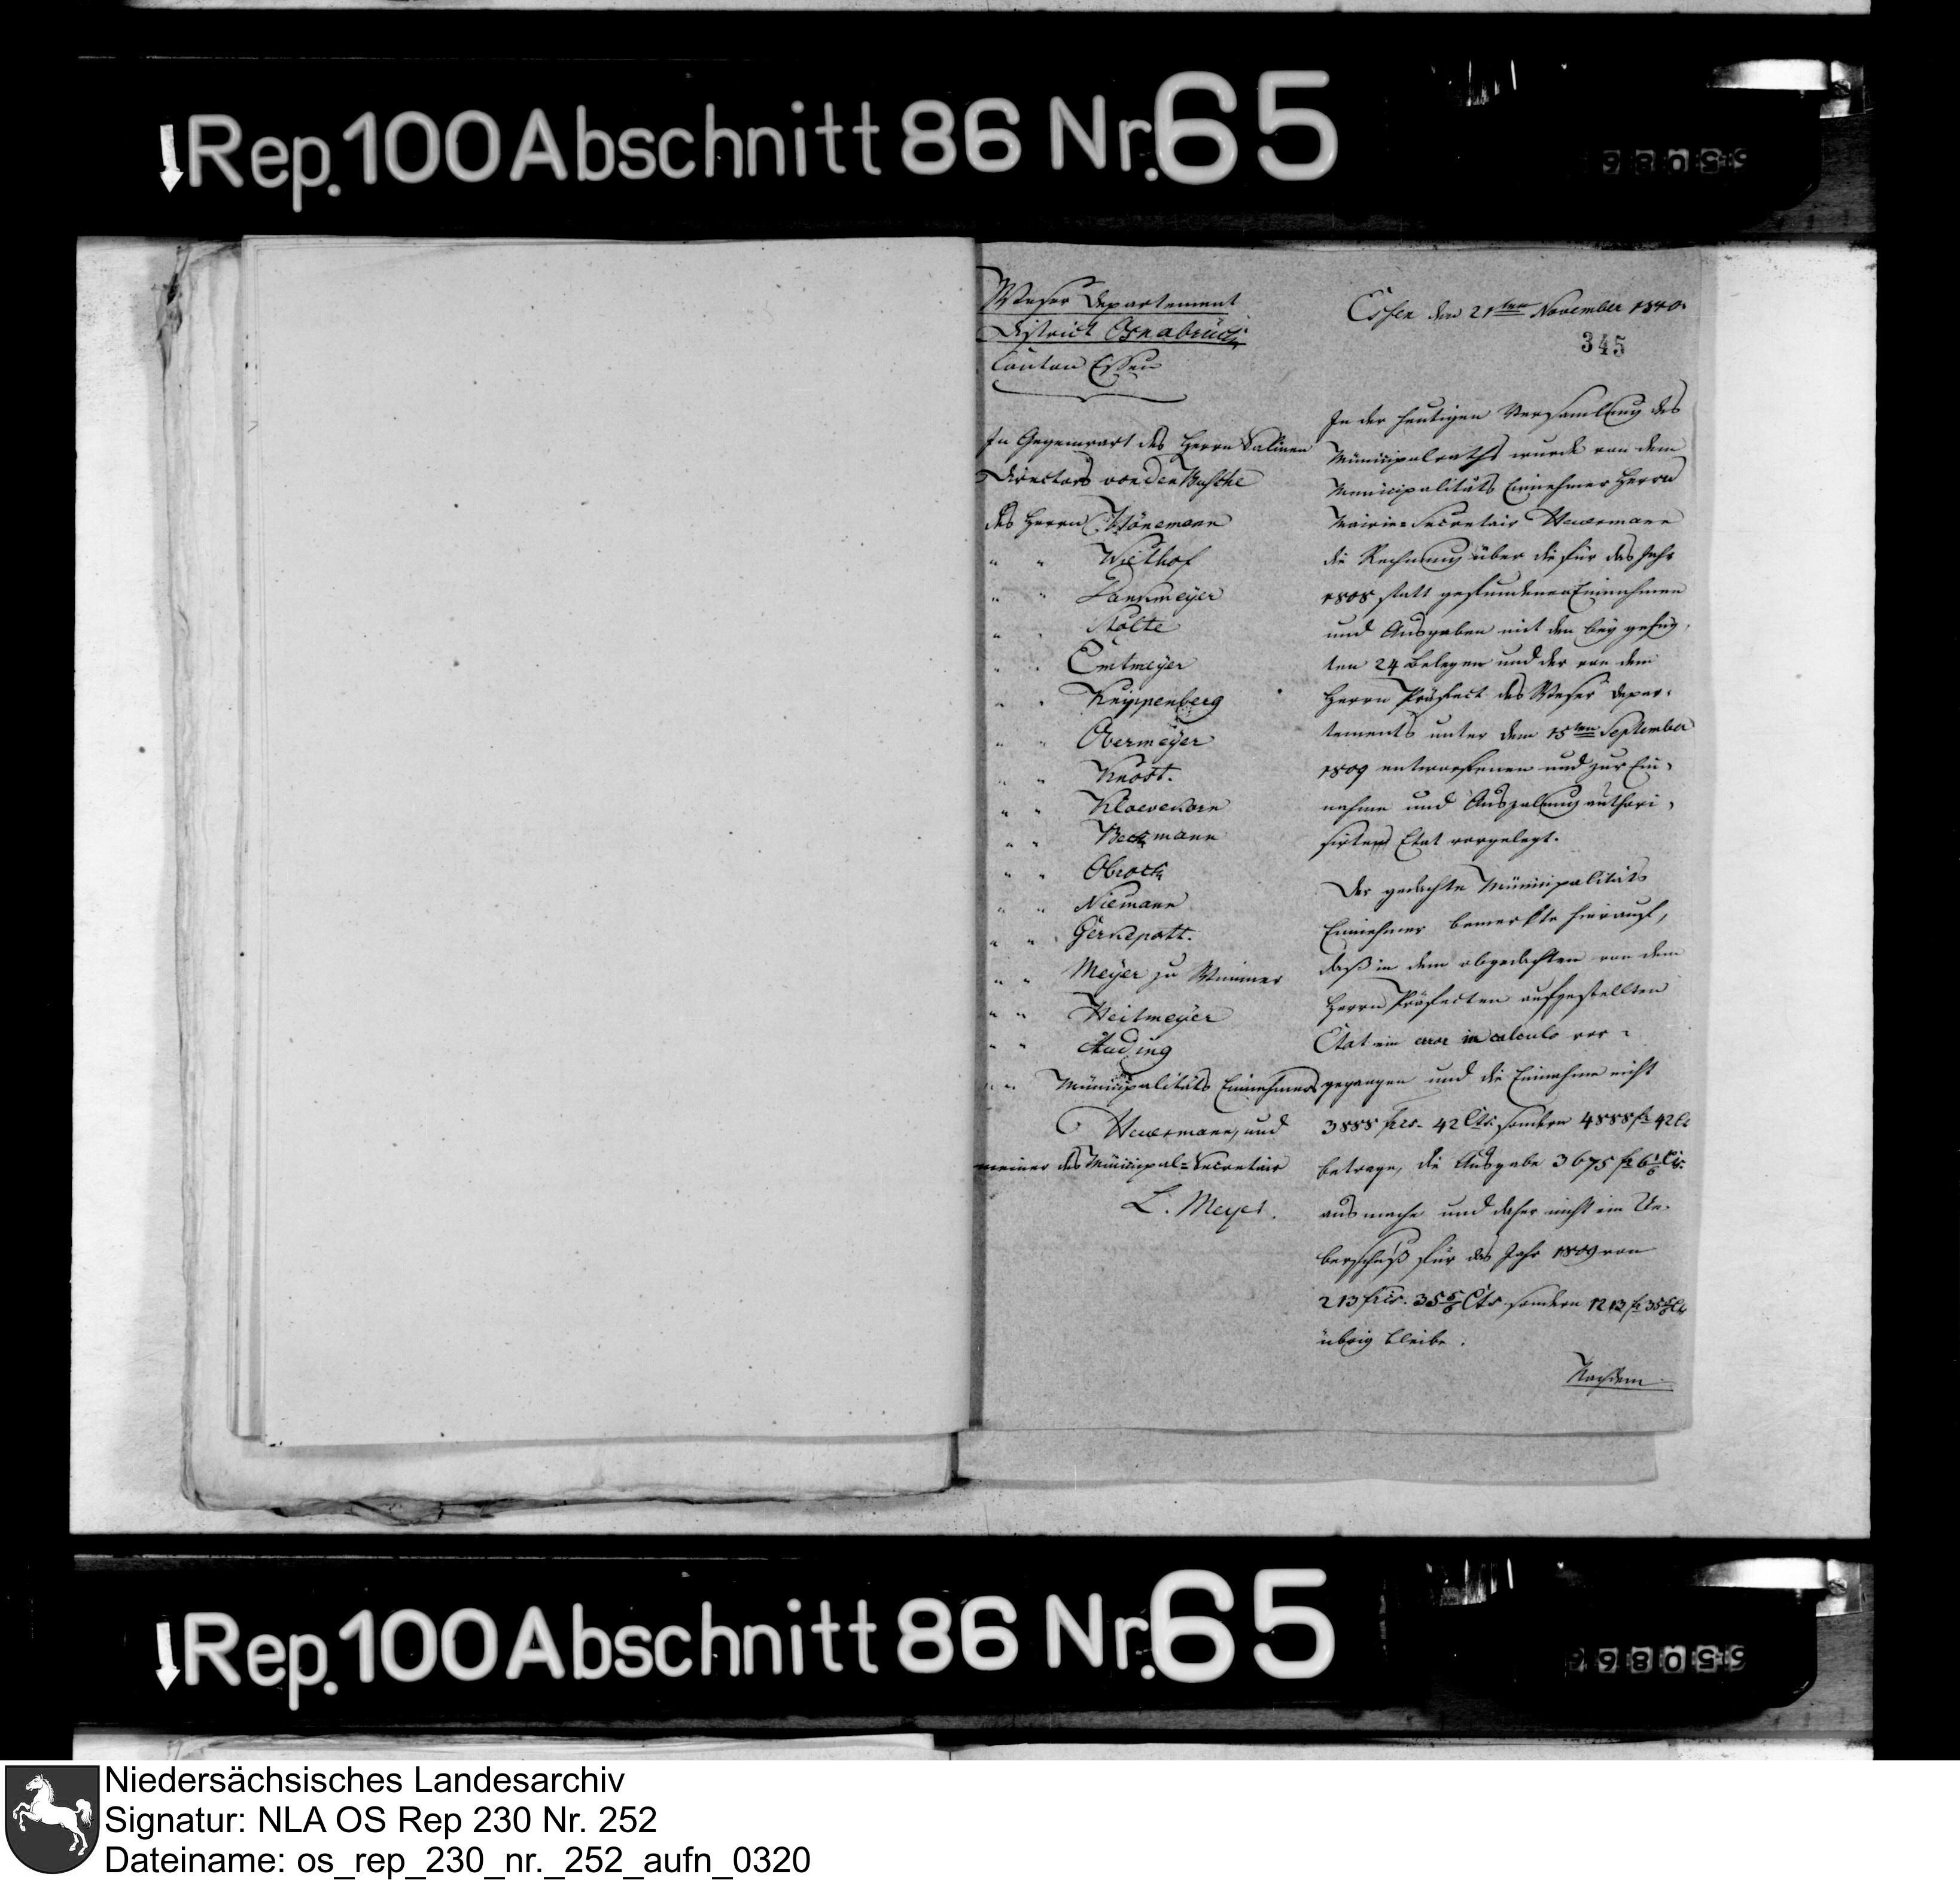 Rep. 100 Abschnitt 86 Nr. 65
Weser Departement
District Osnabrück
Canton Essen
Essen den 21ten November 1810.
345
In Gegenwart des Herrn Salinen
Directors von den Busche
des Herrn Stönemann
" " Wiethof
" " Lankmeyer
" " Nolte
" " Emtmeyer
" " Knippenberg
" " Obermeyer
" " Knost.
" " Kloevekorn
" " Beckmann
" " Obrock
" " Niemann
" " Gerkepott.
" " Meyer zu Wimmer
" " Heitmeyer
" " Auding
" " Municipalitäts Einnehmers
Heuermann, und
meiner des Municipal=Secretair
L. Meyer.
In der heutigen Versamlung des
Municipalraths wurde von dem
Municipalitäts Einnehmer Herrn
Mairie=Secretair Heuermann
die Rechnung über die für das Jahr
1808 statt gefundenen Einnahmen
und Ausgaben mit den bey gefüg,
ten 24 Belegen und der von dem
Herrn Präfect des Weser Depar,
tements unter dem 15ten September
1809 entworfenen und zur Ein,
nahme und Auszalung authori,
sirten Etat vorgelegt.
Der gedachte Municipalitäts
Einnehmer bemerkte hierauf,
daß in dem obgedachten von dem
Herrn Präfecten aufgestellten
Etat ein error in calculo vor=
gegangen und die Einnahme nicht
3888 frcs. 42 Cts. sondern 4888 fr 42 Ct
betrage, die Ausgabe 3675 fr 6 1/6 Cts.
ausmache und daher nicht ein Ue,
berschuß für das Jahr 1809 von
213 frcs. 35 5/6 Cts. sondern 1213 fr 35 5/6 Cts
übrig bleibe.
Nachdem
Rep. 100 Abschnitt 86 Nr. 65
Niedersächsisches Landesarchiv
Signatur: NLA OS Rep 230 Nr. 252
Dateiname: os_rep_230_nr._252_aufn_0320